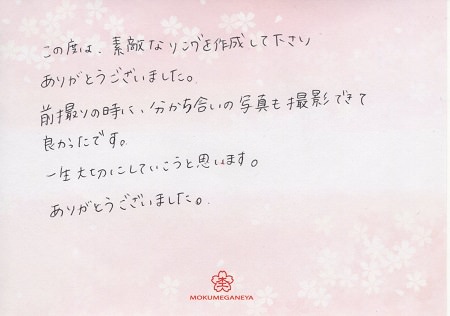 この度は、素敵なリングを作成して下さり
ありがとうございました。
前撮りの時に、分かち合いの写真も撮影できて
良かったです。
一生大切にしていこうと思います。
ありがとうございました。
MOKUMEGANEYA